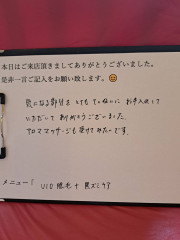 本日はご来店頂きましてありがとうございました。
是非一言ご記入をお願い致します。😊
気になる部分を とても ていねいに お手入れして
いただいて ありがとうございました。
アロママッサージも 受けてみたいです。
メニュー: VIO脱毛 + 黒ズミケア